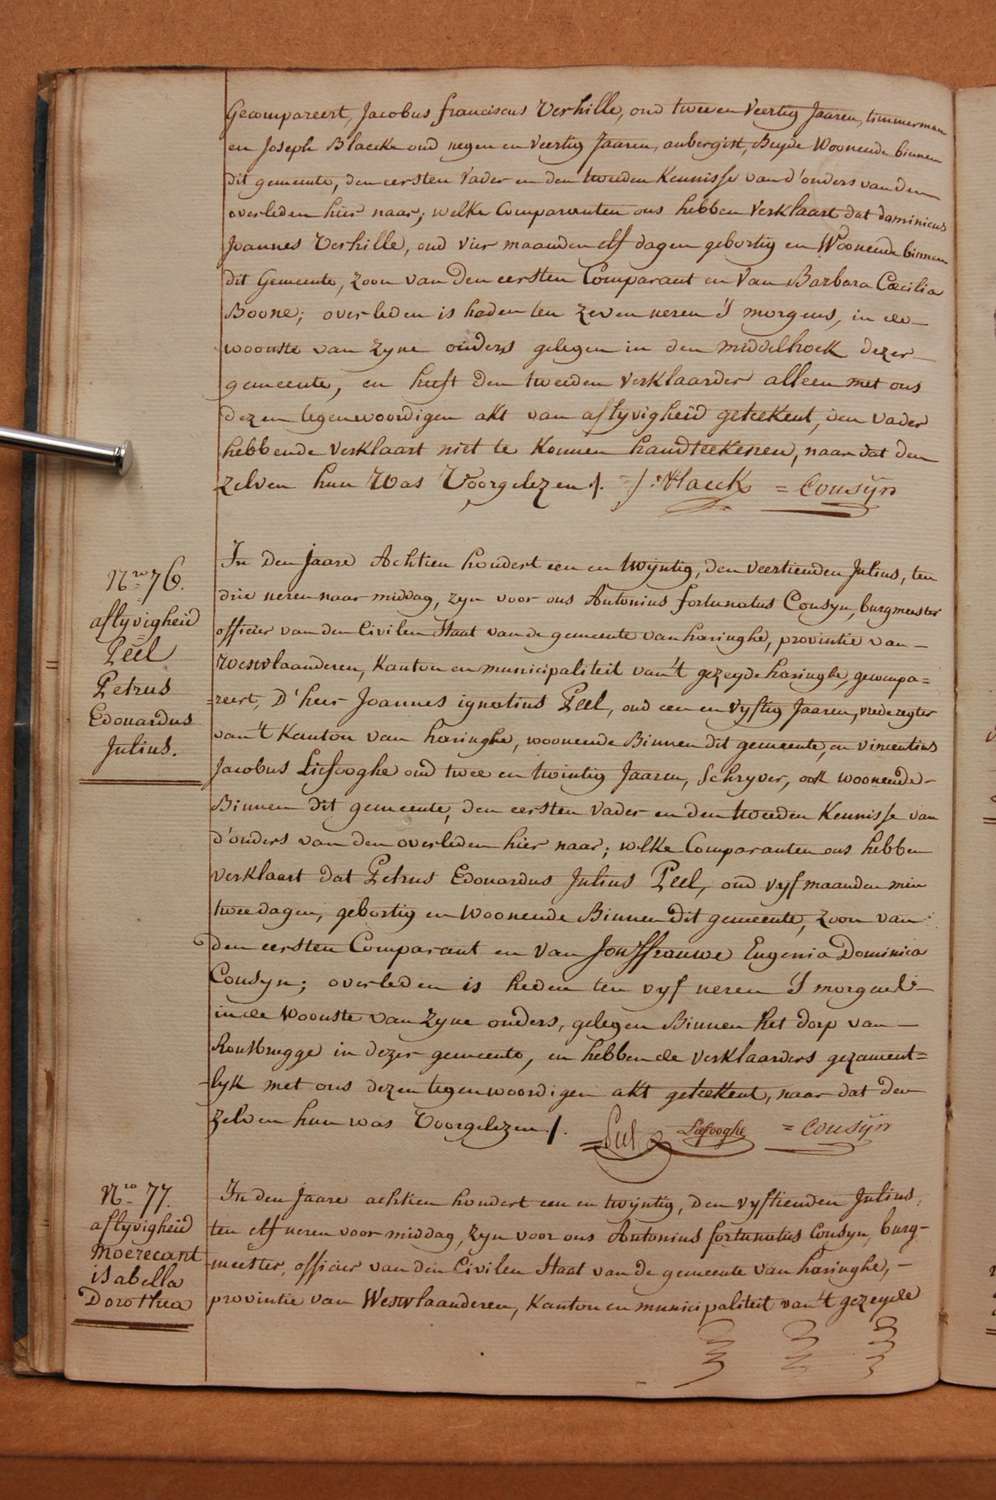 Gecompareert, Jacobus franciscus Verhille, oud twee en veertig Jaaren, timmerman
en Joseph Blaecke oud negen en veertig Jaaren, aubergist, Beyde Woonende binnen
dit gemeente, den eersten vader en den tweeden Kennisse van d'ouders van den
overleden hier naar; welke Comparanten ons hebben verklaart dat dominicus
Joannes Verhille, oud vier maanden elf dagen gebortig en Woonende binnen
dit Gemeente, zoon van den eersten Comparant en van Barbara Cæcilia
Boone; overleden is heden ten zeven ueren 's morgens, in de
woonste van zyne ouders gelegen in den middelhoek dezer
gemeente, en heeft den tweeden verklaarder alleen met ons
dezen tegenwoordigen akt van aflyvigheid geteekent, den vader
hebbende verklaart niet te konnen handteekenen, naar dat den
zelven hun Was Voorgelezen /. J: Blaeck = Cousÿn
Nro 76.
aflyvigheid
Peel
Petrus
Edouardus
Julius.
In den Jaare Achtien hondert een en twÿntig, den veertienden Julius, ten
drie ueren naar middag, zyn voor ons Antonius fortunatus Cousyn, burgmeester
officier van den Civilen Staat van de gemeente van haringhe, provintie van
Westvlaanderen, Kanton en municipaliteit van 't gezeyde haringhe, gecompa=
=reert, D'heer Joannes ignatius Peel, oud een en vyftig Jaaren, vrederegter
van 't Kanton van haringhe, woonende Binnen dit gemeente, en vincentius
Jacobus Liefooghe oud twee en twintig Jaaren, Schryver, ook woonende
Binnen dit gemeente, den eersten vader en den tweeden Kennisse van
d'ouders van den overleden hier naar; welke Comparanten ons hebben
verklaart dat Petrus Edouardus Julius Peel, oud vyf maanden min
twee dagen, gebortig en woonende Binnen dit gemeente, zoon van
den eersten Comparant en van Jouffrauwe Eugenia Dominica
Cousyn; overleden is heden ten vyf ueren 's morgens
in de woonste van zyne ouders, gelegen Binnen het dorp van
Rousbrugge in dezer gemeente, en hebben de verklaarders gezament=
lyk met ons dezen tegenwoordigen akt geteekent, naar dat den
zelven hun was voorgelezen /. Peel Liefooghe = Cousÿn
Nro 77.
aflyvigheid
Moerecant
isabella
Dorothea
In den Jaare achtien hondert een en twyntig, den vyftienden Julius,
ten elf ueren voor middag, zyn voor ons Antonius fortunatus Cousyn, burg-
meester, officier van den Civilen Staat van de gemeente van haringhe,
provintie van Westvlaanderen, Kanton en municipaliteit van 't gezeyde